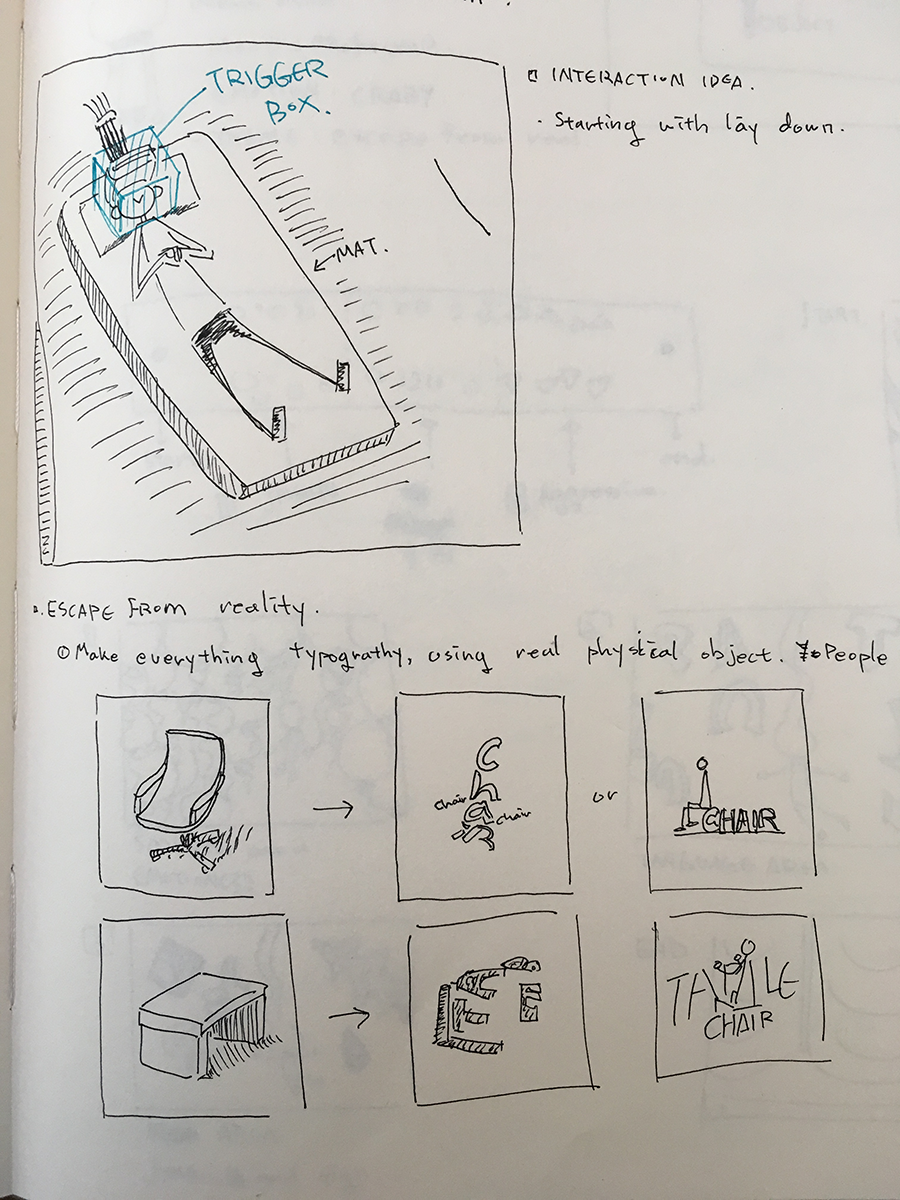 TRIGGER
BOX.
MAT.
INTERACTION IDEA.
· Starting with lay down.
ESCAPE FROM reality.
① Make everything typograthy, using real physical object. People
Chair
chair
chair
or
CHAIR
TABLE
CHAIR